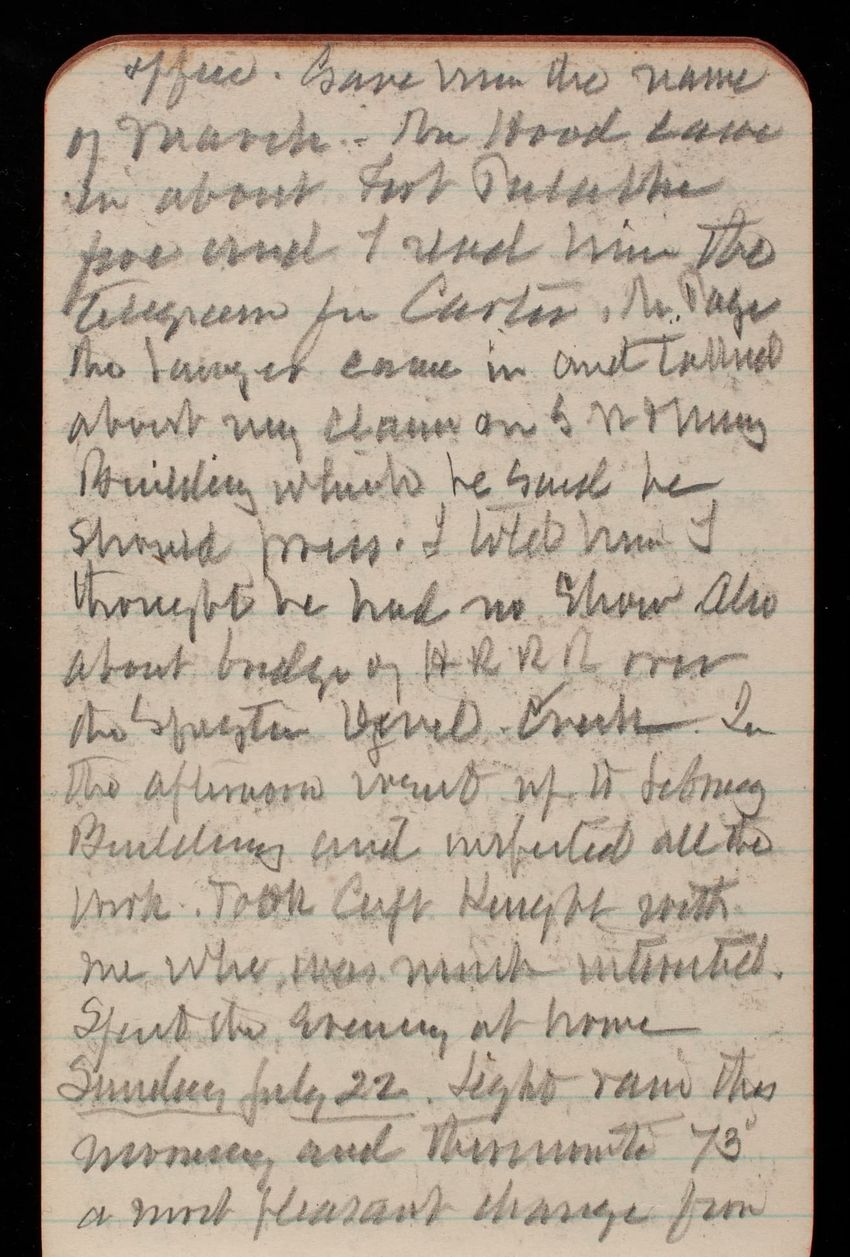 office. Gave him the name
of March - Mr Hood came
in about Fort Pulaski
foe and I read him the
telegram for Carter. Mr. Page
the lawyer came in and talked
about my claim on
Building which he said he
should press. I told him I
thought he had no show Also
about bridge of H R R R over
the Spuyten Dyvel Creek. In
the afternoon went up to Library
Building and inspected all the
work. Took Capt Knight with
me who was much interested.
Spent the evening at home
Sunday July 22. Light rain this
morning and thermomtr 73°
a most pleasant change from